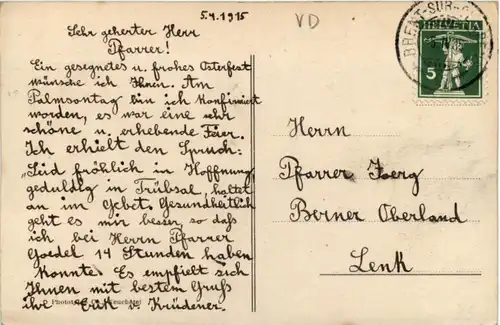 5.4.1915
VD
Sehr geherter Herr
Pfarrer!
Ein gesegnetes u. frohes Osterfest
wünsche ich Ihnen. Am
Palmsontag bin ich Konfirmiert
worden, es war eine sehr
schöne u. erhebende Feier.
Ich erhielt den Spruch:
"Sid fröhlich in Hoffnung
geduldig in Trübsal, haltet
an im Gebet. Gesundheitlich
geht es mir besser, so daß
ich bei Herrn Pfarrer
Goedel 14 Stunden haben
Konnte. Es empfielt sich
Ihnen mit bestem Gruß
ihr Erik v. Krüdener.
BRENT-SUR-
HELVETIA
5
Herrn
Pfarrer Joerg
Berner Oberland
Lenk